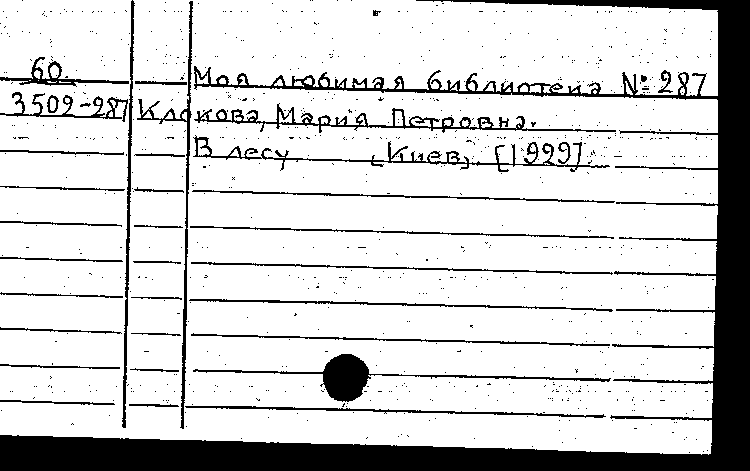 60 Моя любимая библиотека № 287
3509-287 Клокова, Мария Петровна.
В лесу [Киев]. [1929].